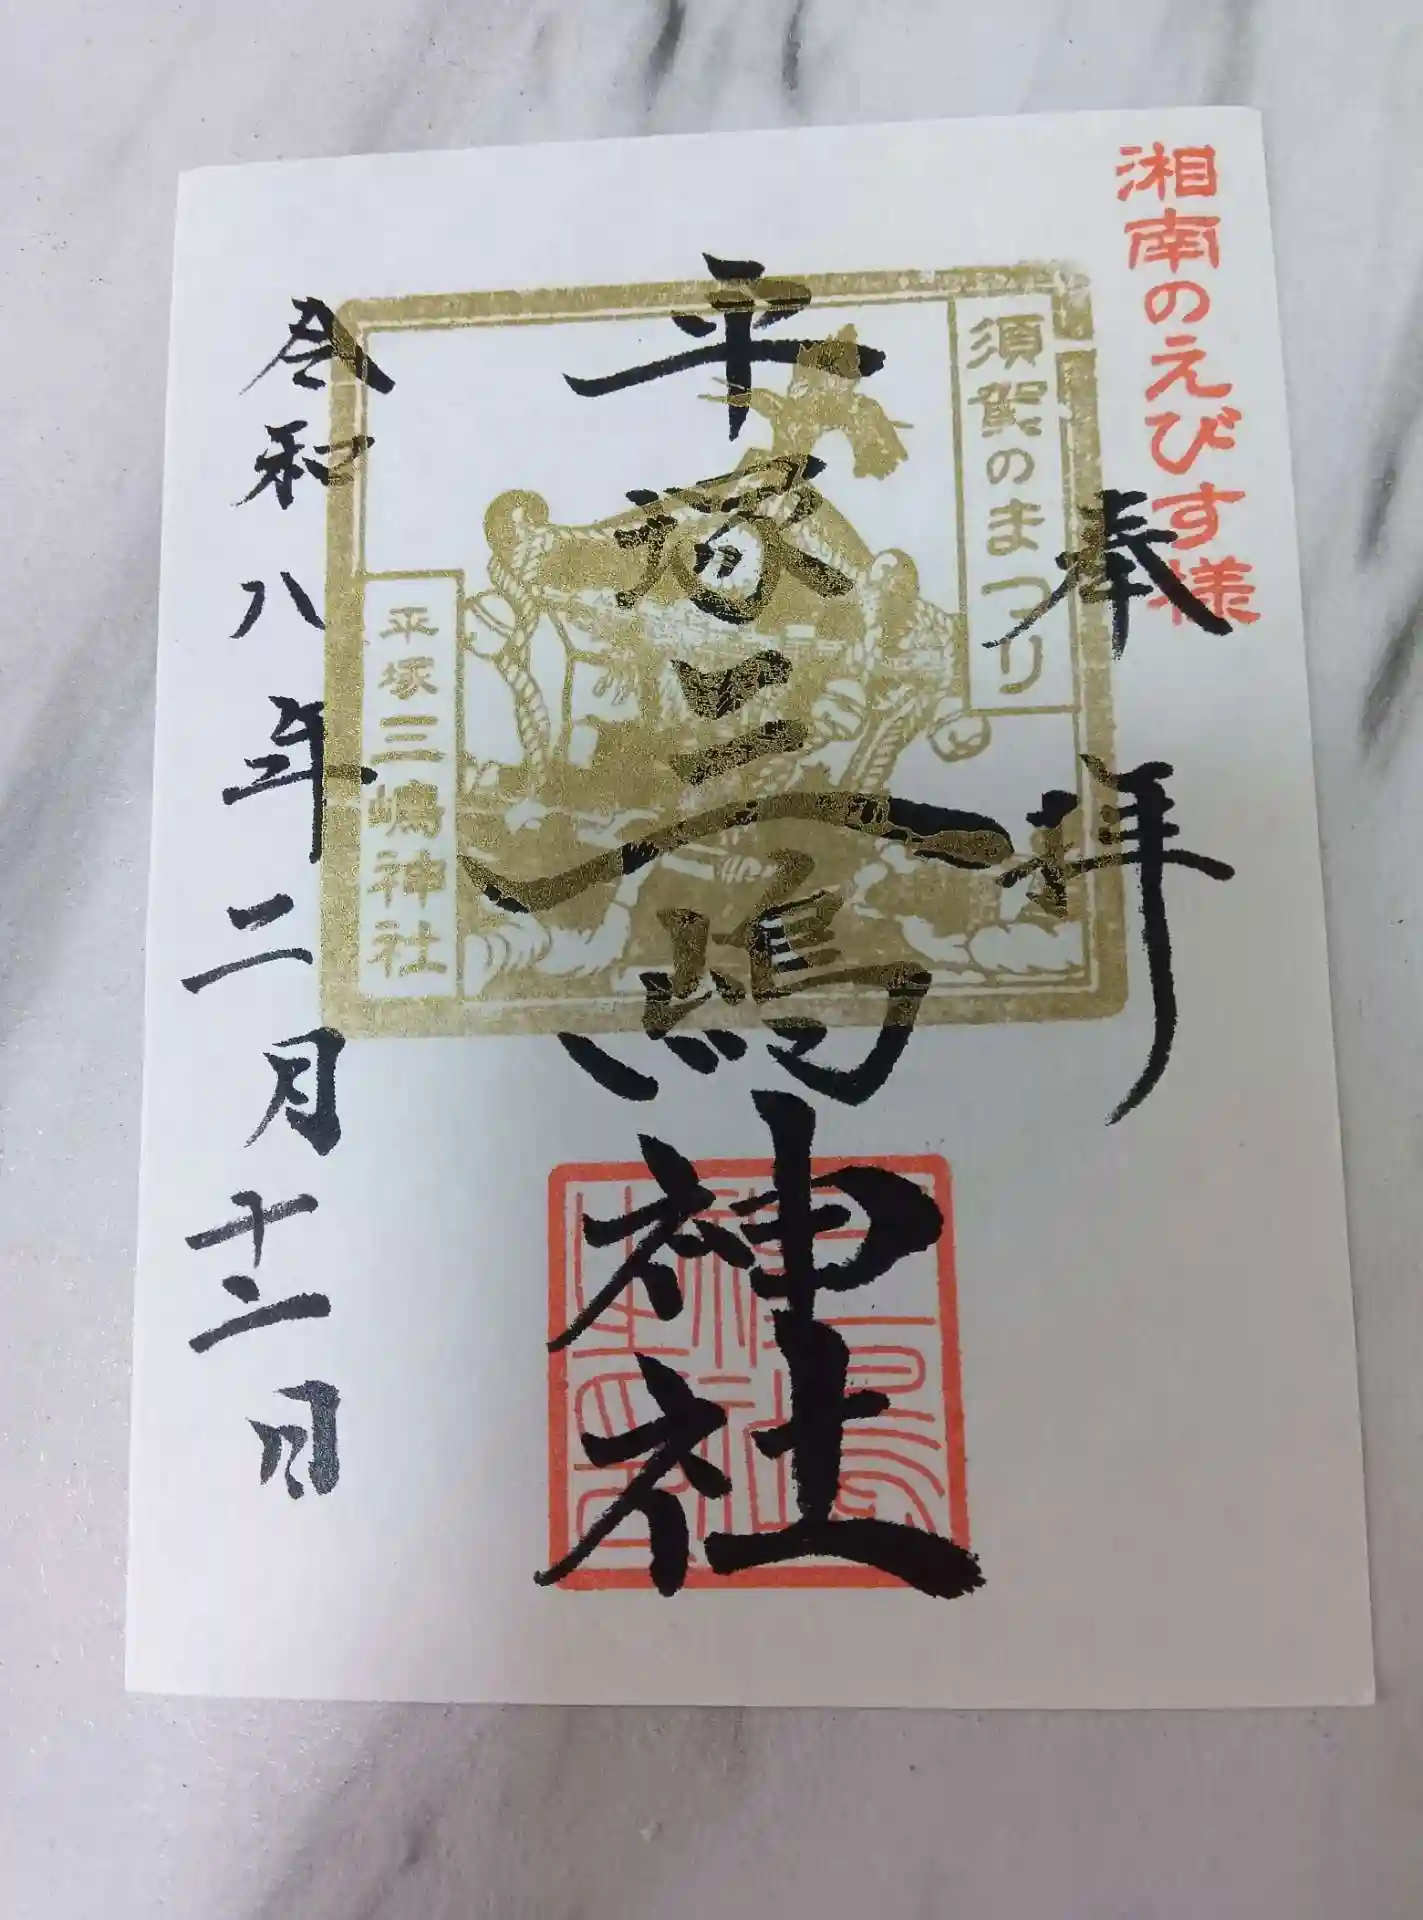 湘南のえびす様
奉拝
須賀のまつり
平塚三嶋神社
平塚三嶋神社
令和八年二月十二日